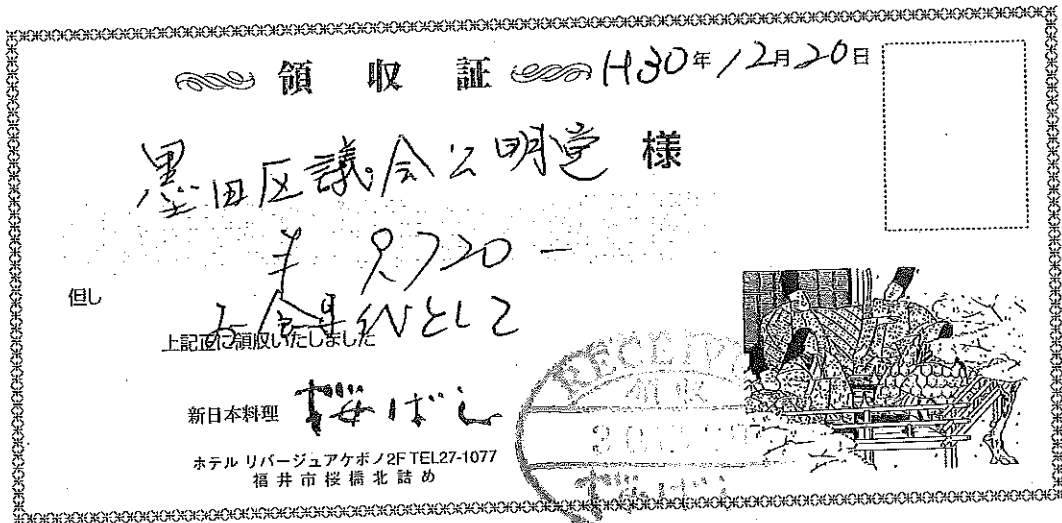 領収証 H30年12月20日
墨田区議会公明党 様
¥9,720-
但し お食事代として
上記正に領収いたしました
新日本料理 桜ばし
ホテル リバージュアケボノ2F TEL27-1077
福井市桜橋北詰め
RECEIV
領収
桜ばし